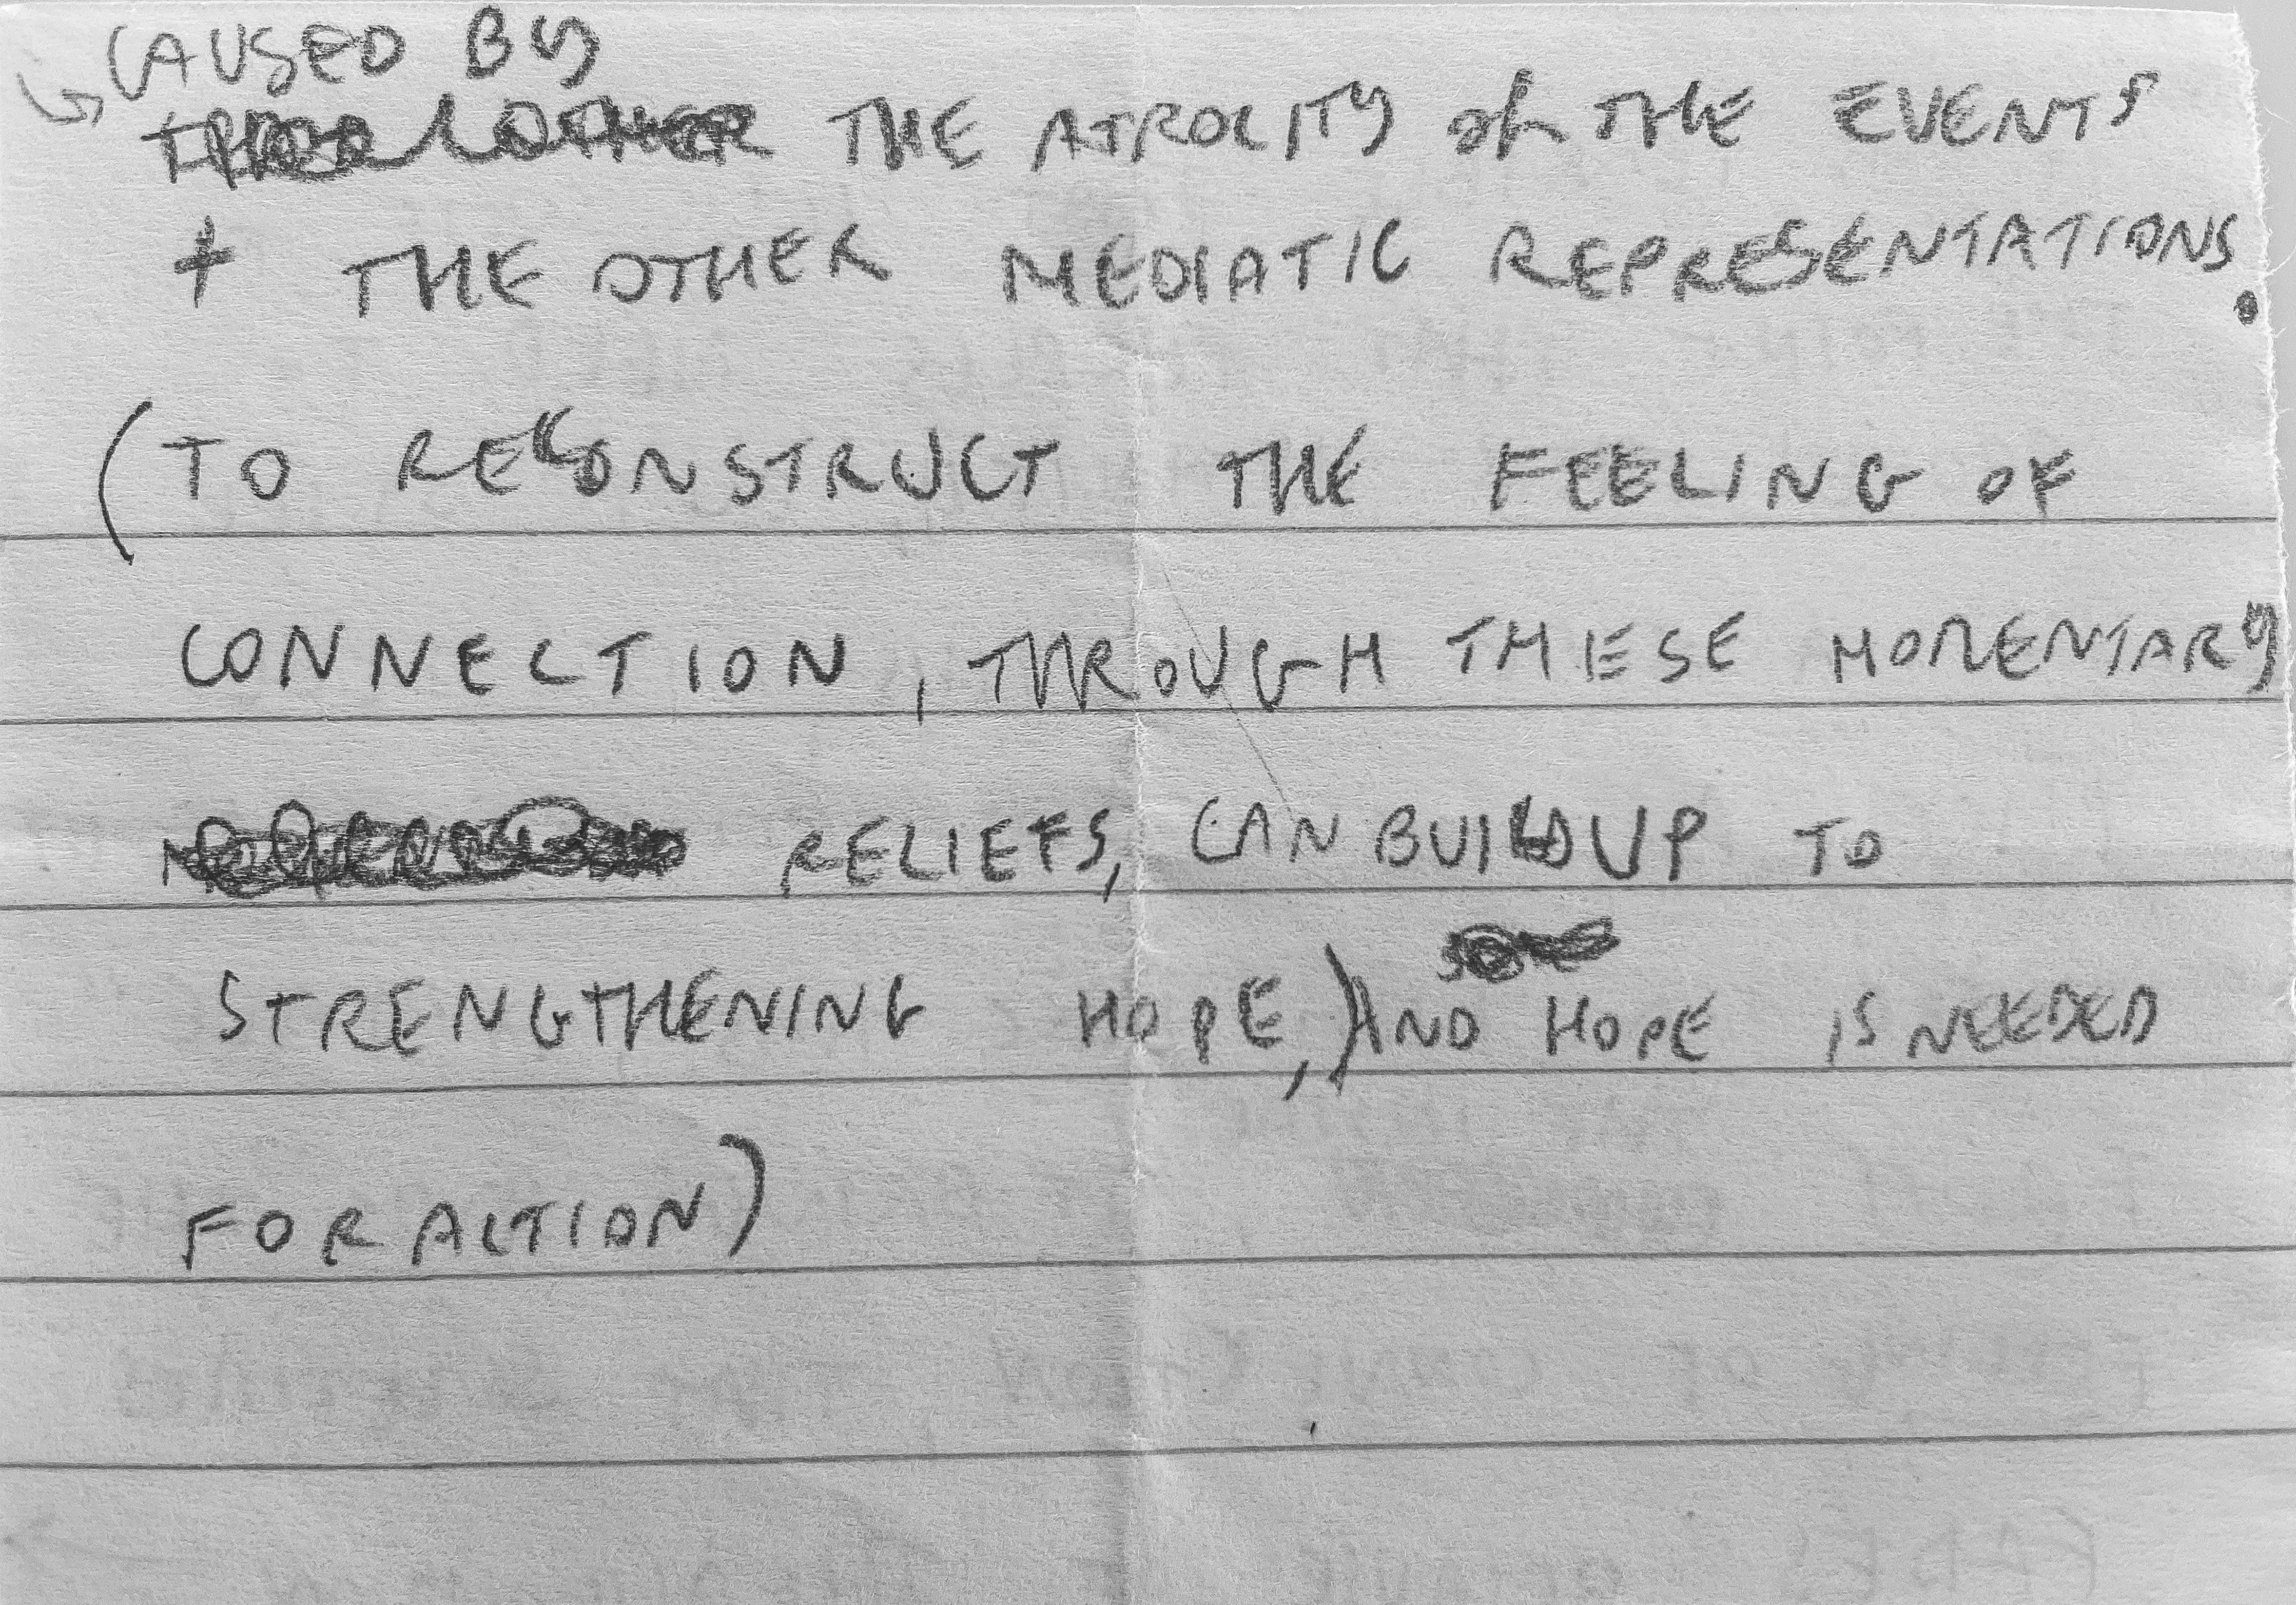 CAUSED BY
THE ATROCITY of THE EVENTS
+ THE OTHER MEDIATIC REPRESENTATIONS.
(TO RECONSTRUCT THE FEELING OF
CONNECTION, THROUGH THESE MOMENTARY
RELIEFS, CAN BUILD UP TO
STRENGTHENING HOPE,) AND HOPE IS NEEDED
FOR ACTION)